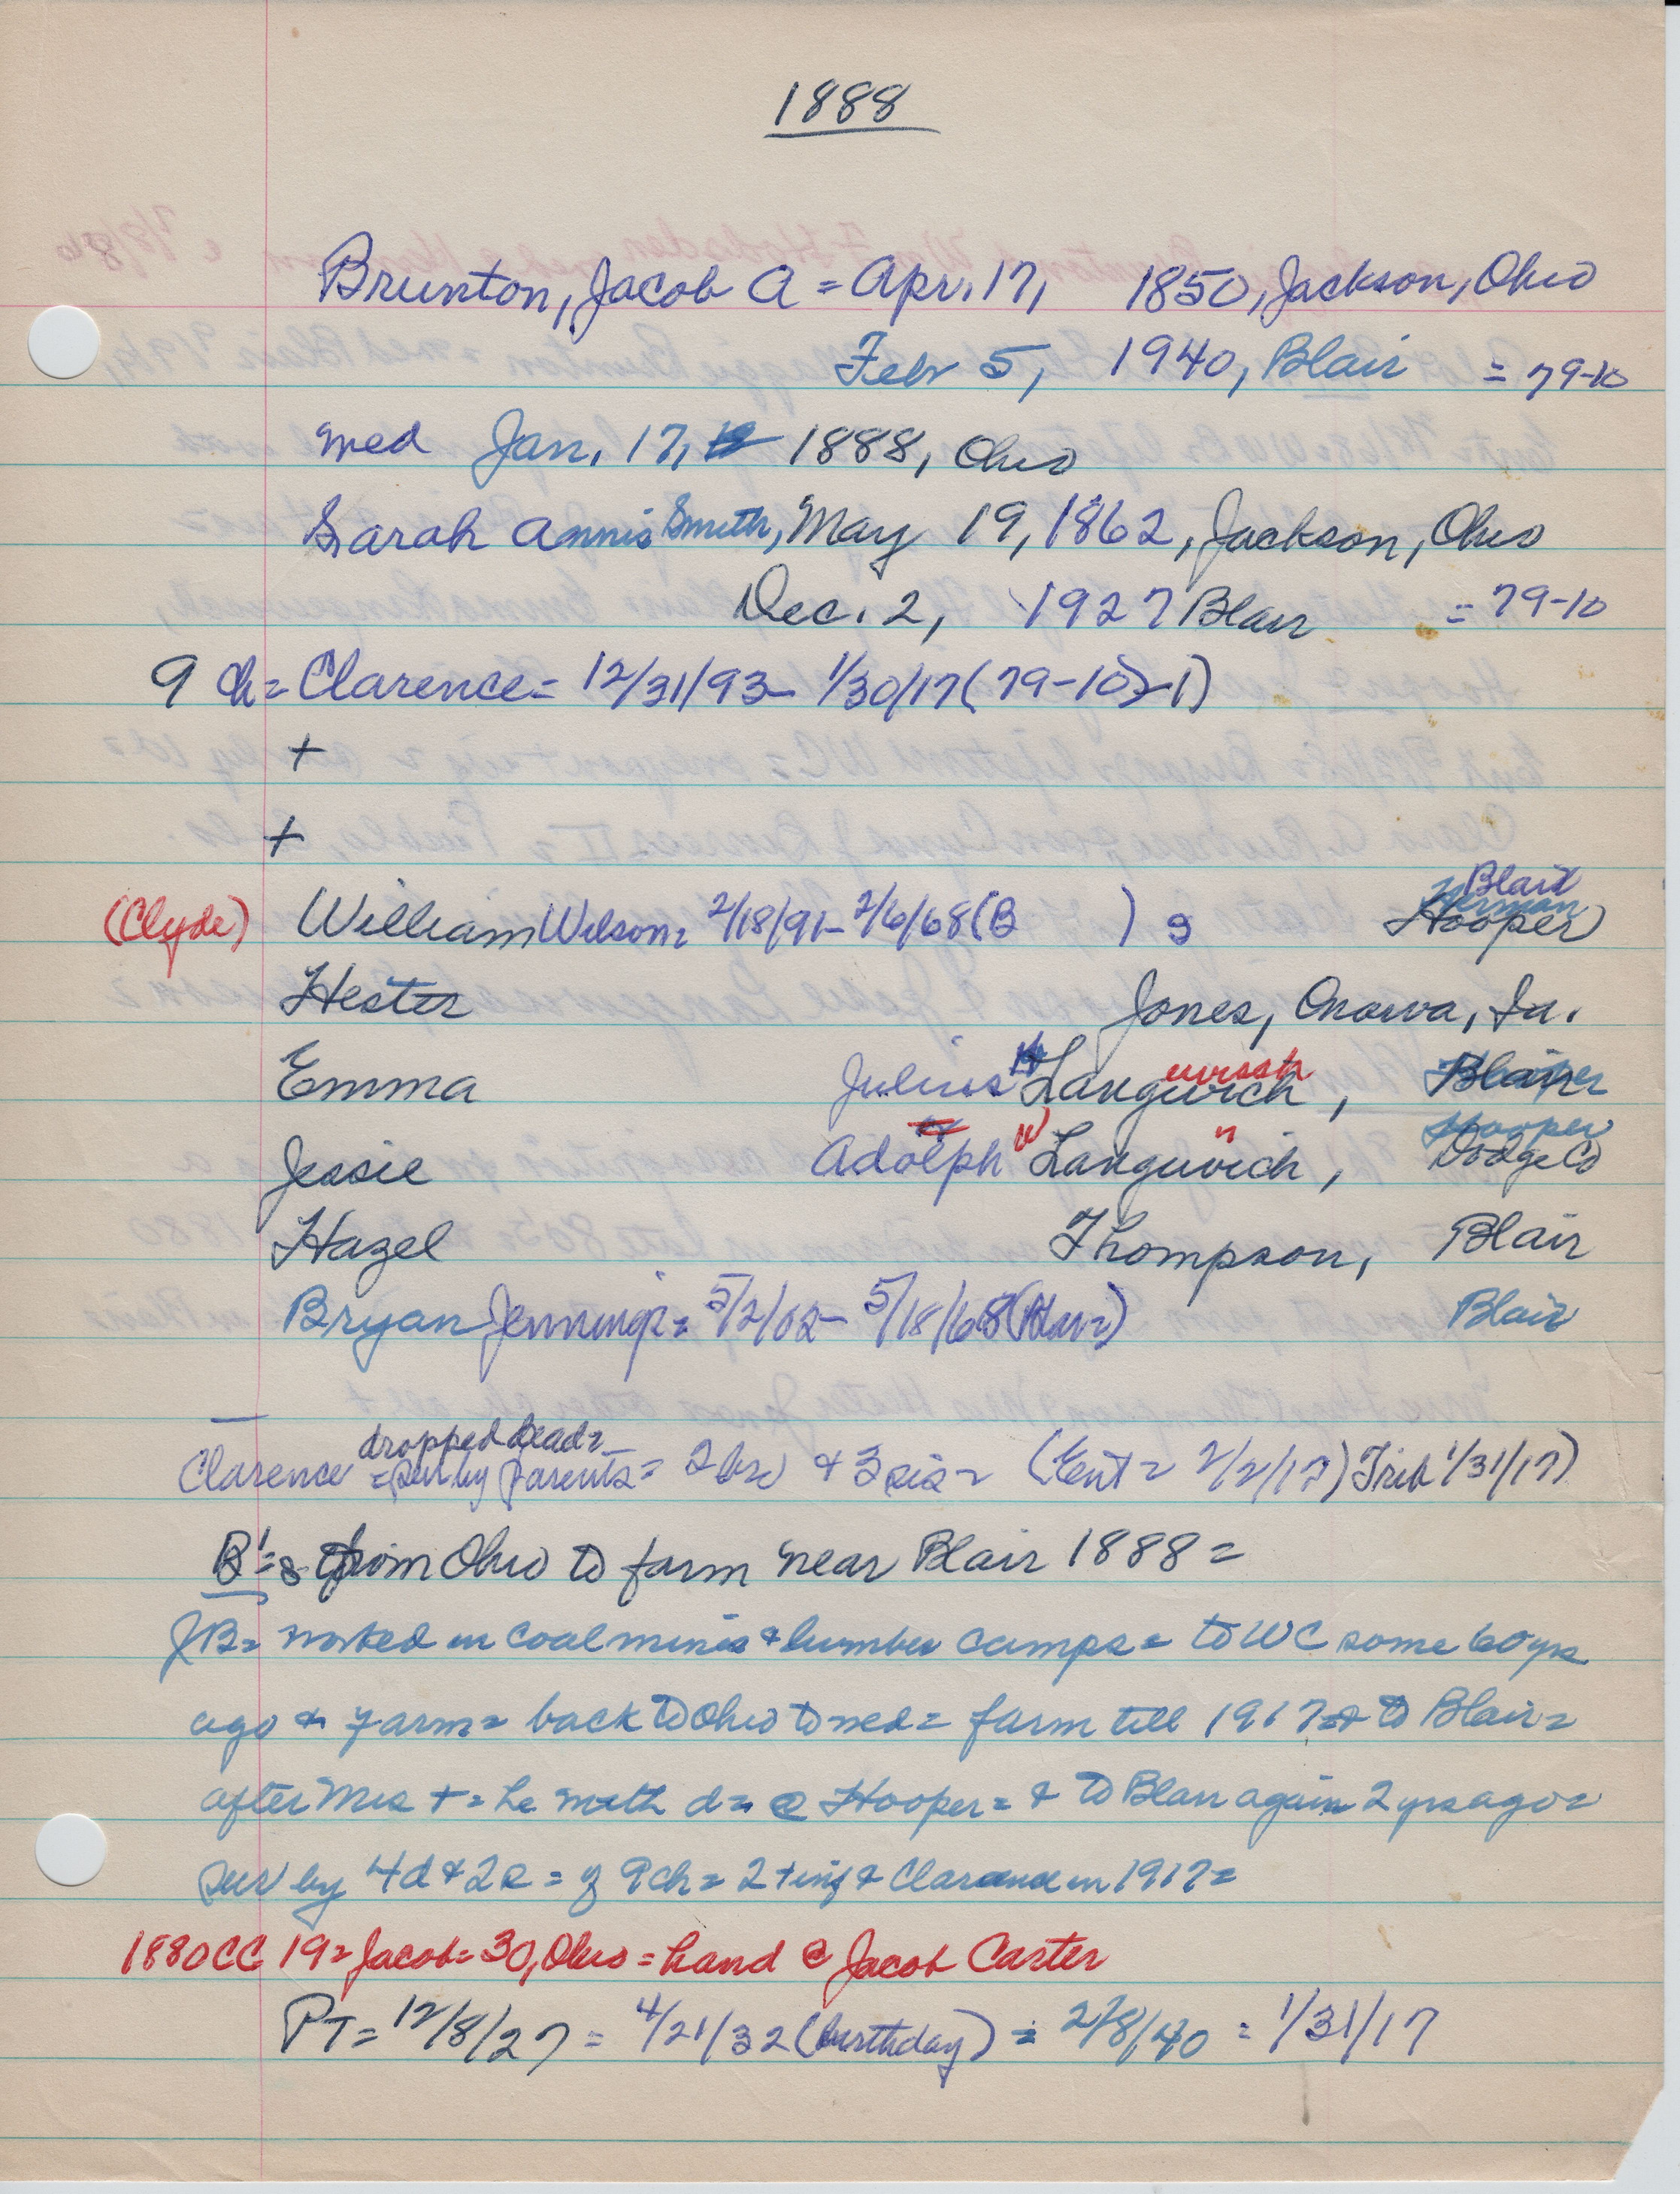 1888
Brunton, Jacob A = Apr. 17, 1850, Jackson, Ohio
Feb 5, 1940, Blair = 79-10
med Jan. 17, 1888, Ohio
Sarah Annis Smith, May 19, 1862, Jackson, Ohio
Dec. 2, 1927 Blair = 79-10
9 ch = Clarence = 12/31/93 - 1/30/17 (79-10-1)
+
+
Blair
Herman
(Clyde) William Wilson = 2/18/91 - 2/6/68 (B ) Hooper
Hester Jones, Onawa, Ia.
Emma Julius Langwich, Blair
Hooper
Jessie Adolph Langwich, Dodge Co
Hazel Thompson, Blair
Bryan Jennings = 5/2/02 - 5/18/68 (Blair) Blair
dropped dead =
Clarence = sur by parents = 2 br & 3 sis = (Ent = 2/2/17) Trib 1/31/17)
B's from Ohio to farm near Blair 1888 =
JB = worked in coal mines & lumber camps = to WC some 60 yrs
ago & farm = back to Ohio to med = farm till 1917 = & to Blair =
after Mrs + = he with d = @ Hooper = & to Blair again 2 yrs ago =
sur by 4 d & 2 s = of 9 ch = 2 + inf & Clarence in 1917 =
1880 CC 19 = Jacob = 30, Ohio = hand @ Jacob Carter
PT = 12/8/27 = 4/21/32 (birthday) = 2/8/40 = 1/31/17